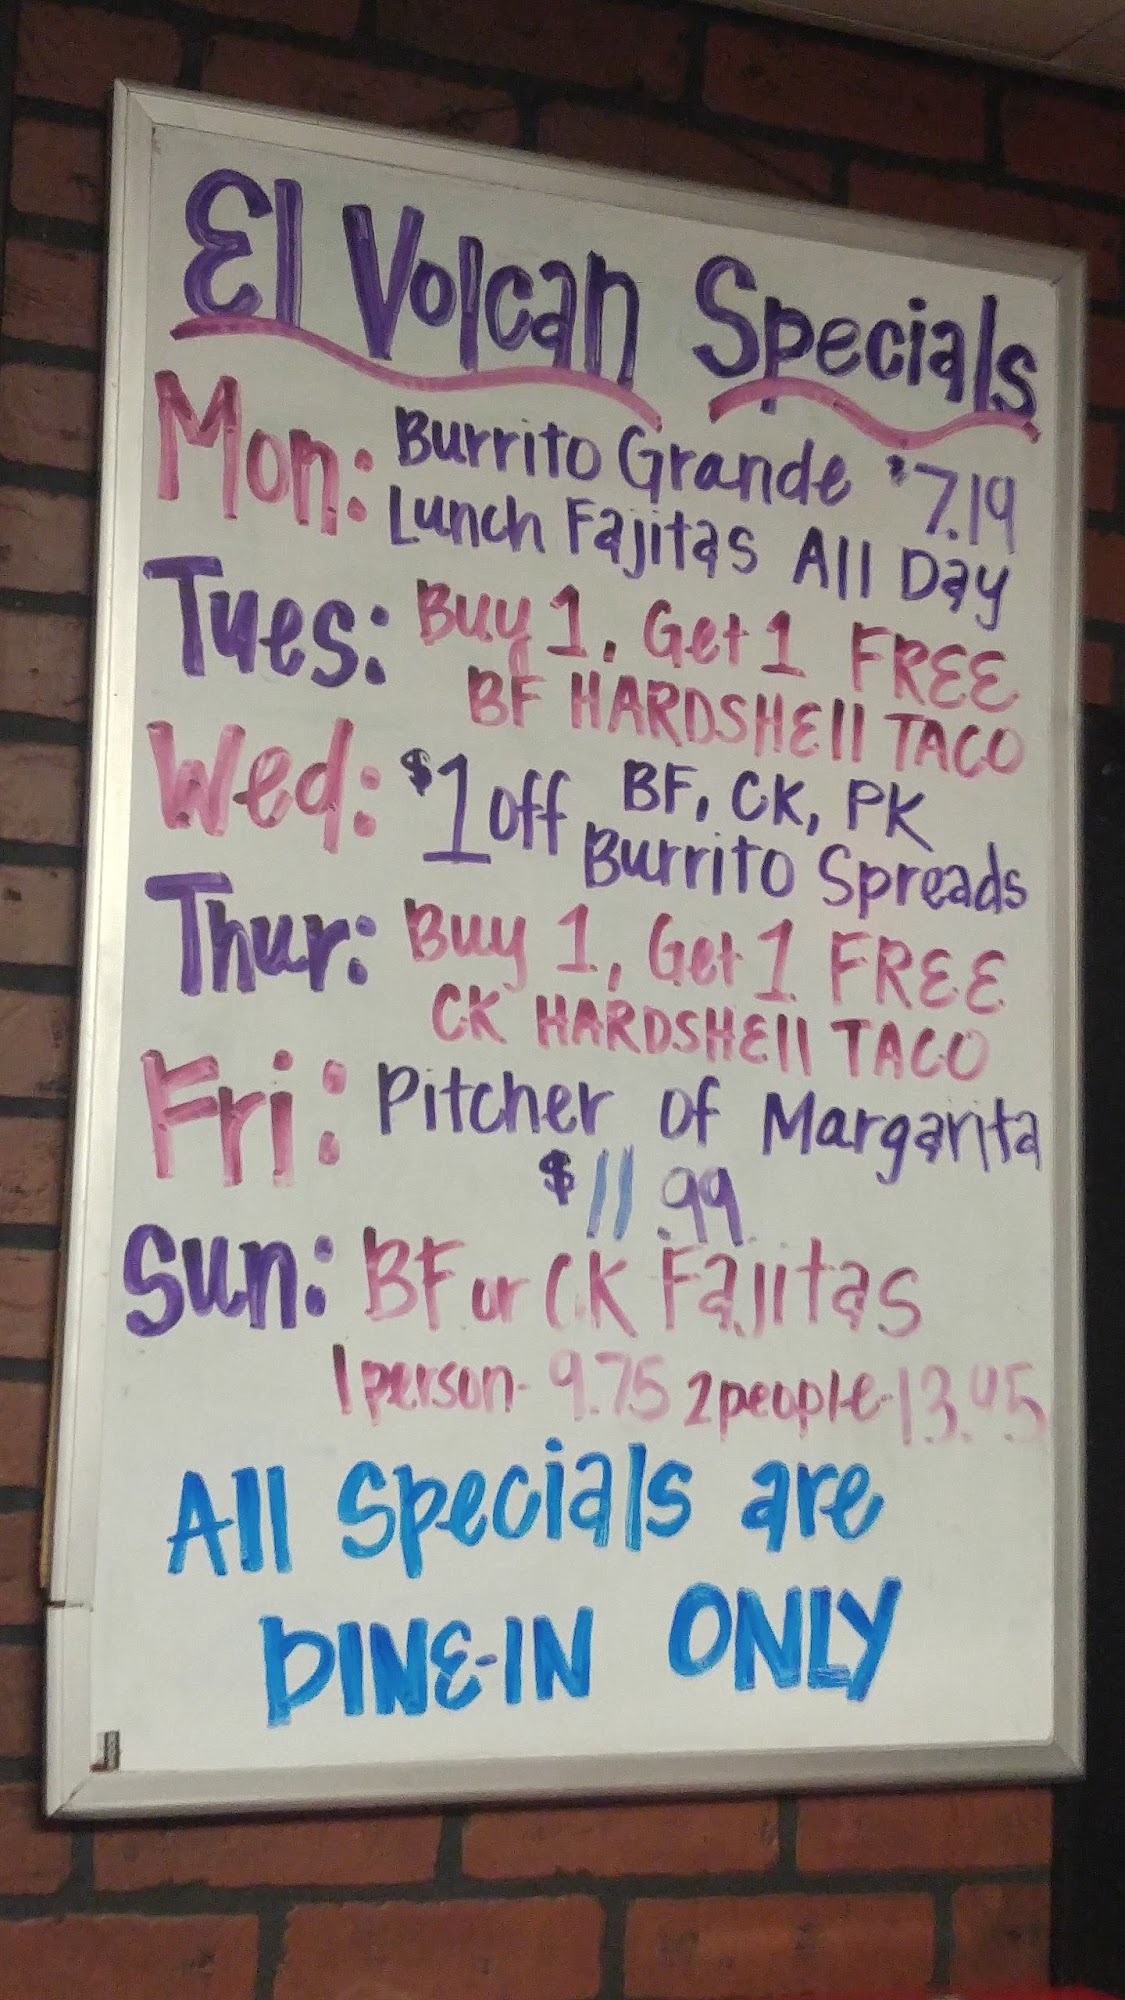 El Volcan Specials
Mon: Burrito Grande $7.19
Lunch Fajitas All Day
Tues: Buy 1, Get 1 FREE
BF HARDSHEll TACO
Wed: $1 off BF, CK, PK
Burrito Spreads
Thur: Buy 1, Get 1 FREE
CK HARDSHEll TACO
Fri: Pitcher of Margarita
$11.99
Sun: BF or CK Fajitas
1 person- 9.75 2 people-13.95
All Specials are
DINE-IN ONLY